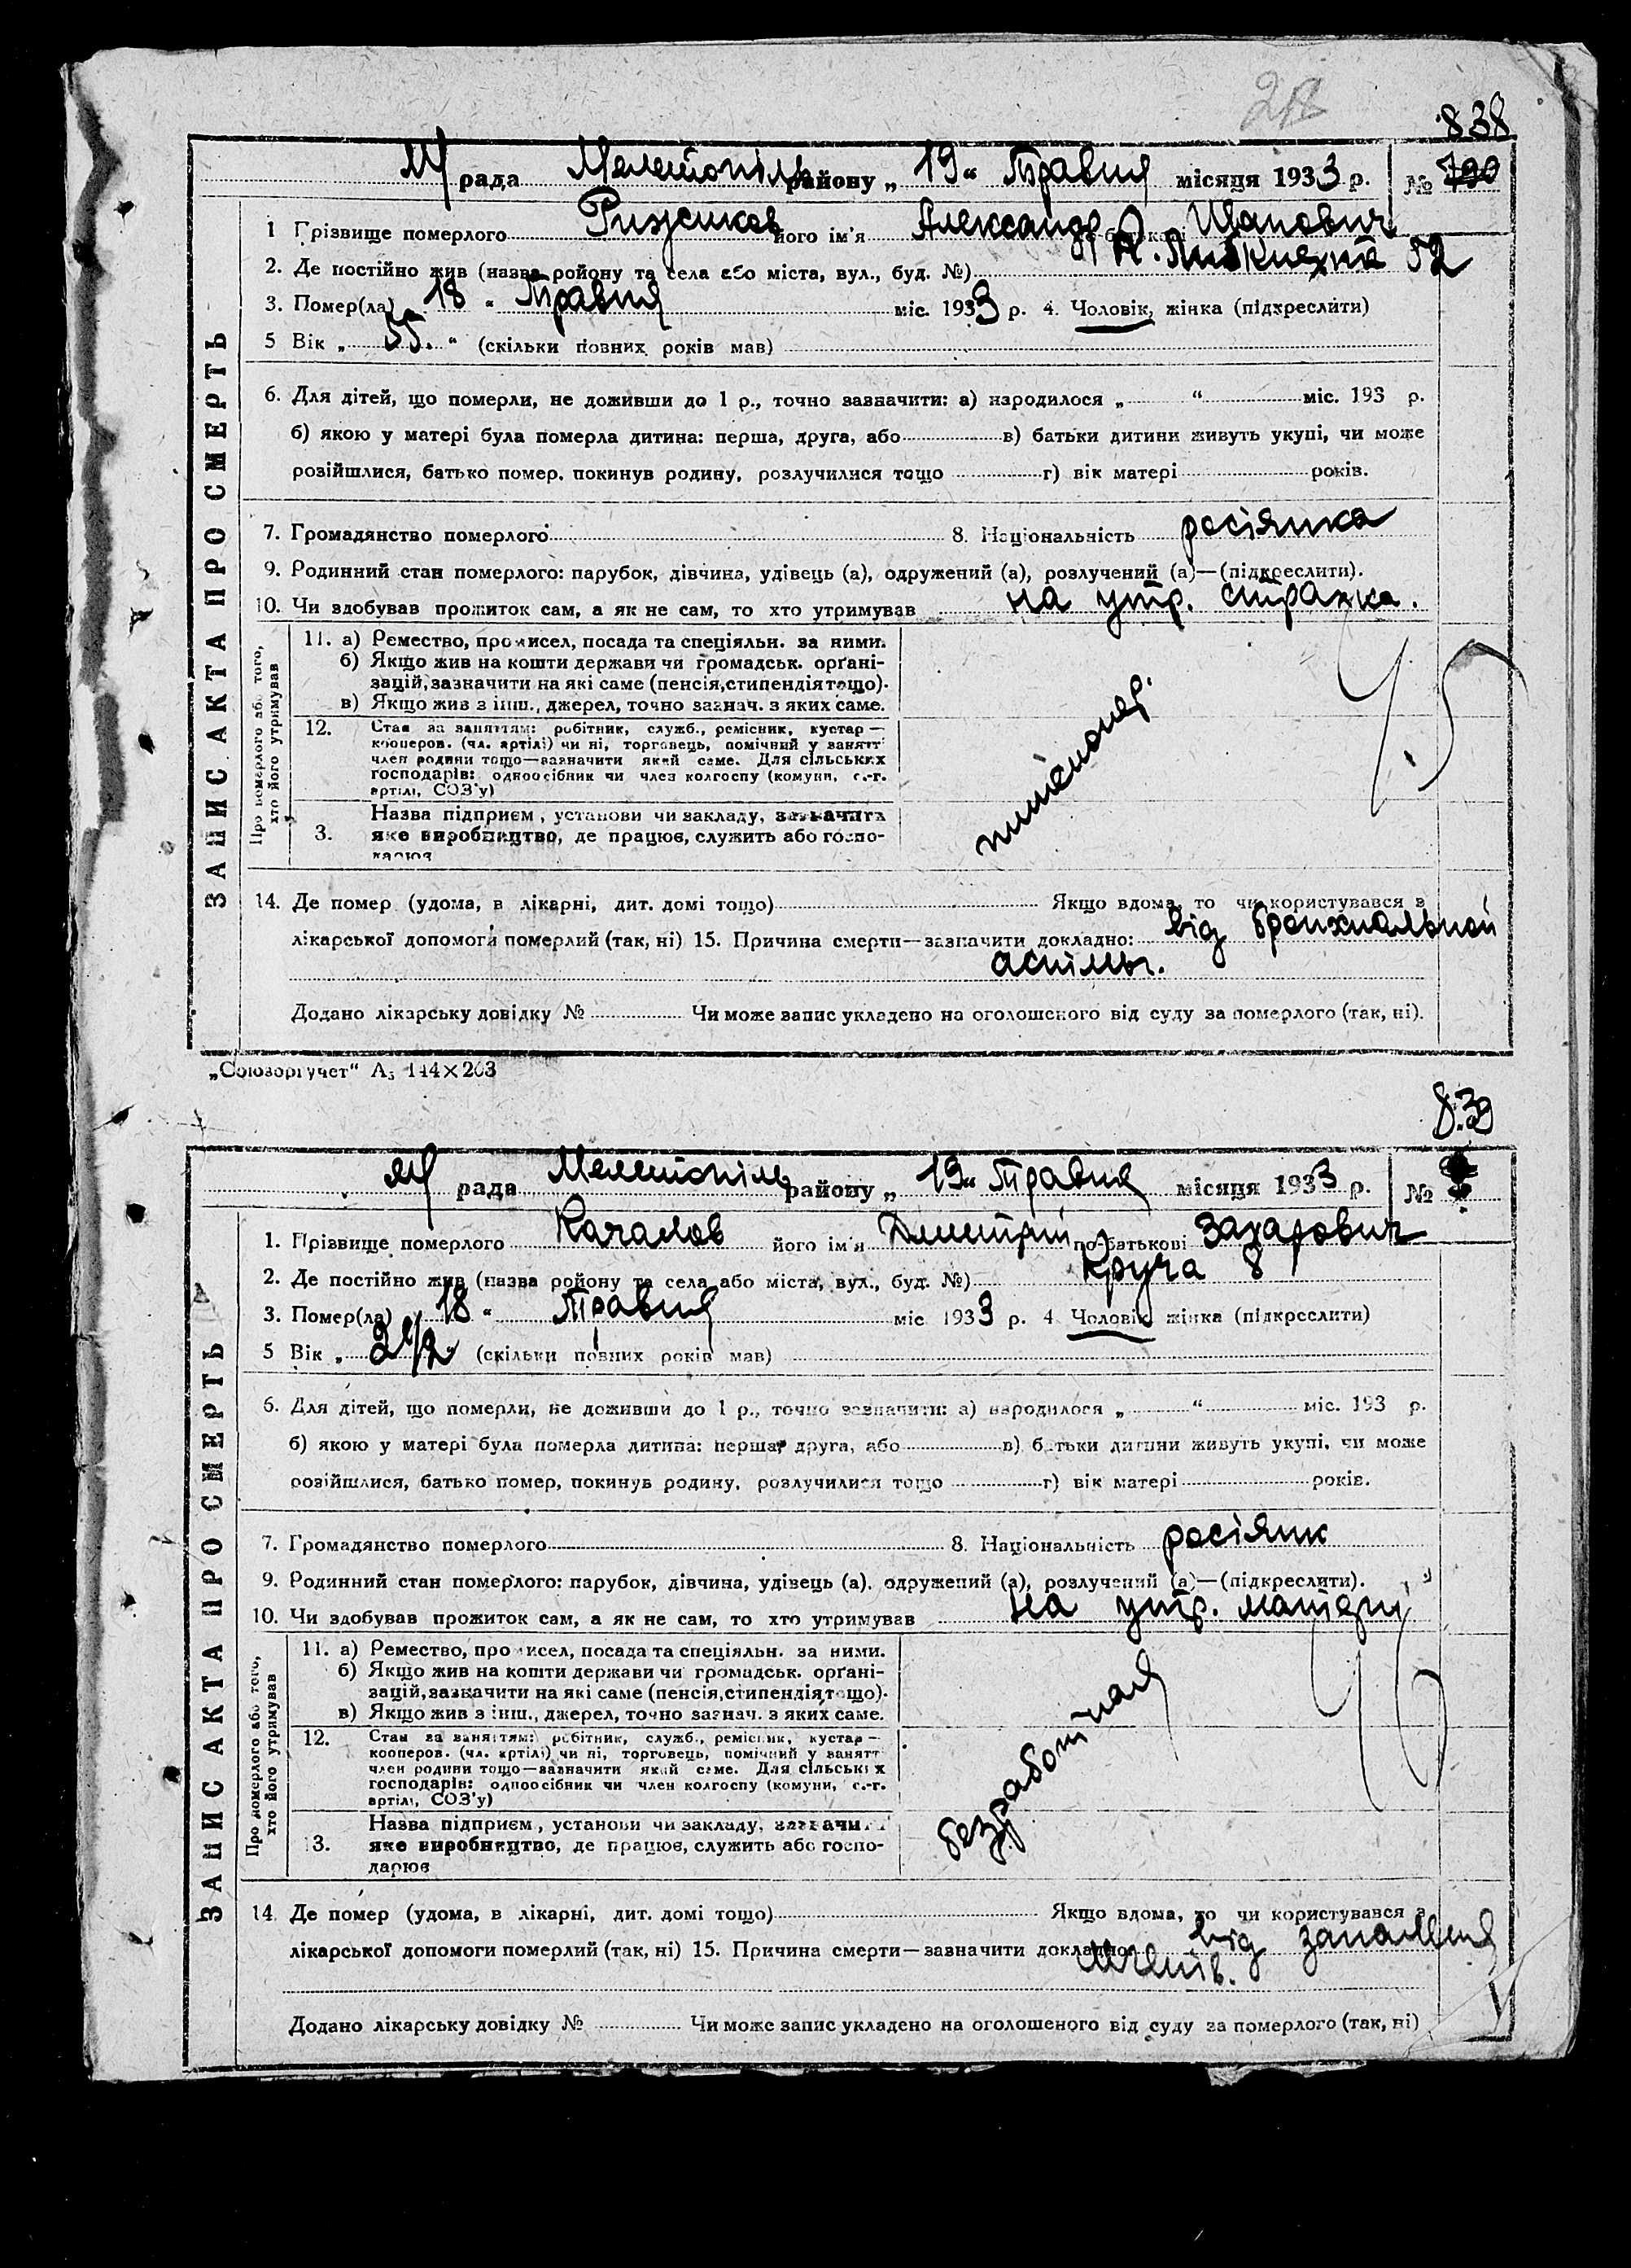 838
М/ рада Мелетопіль району „ 19 “ Травня місяця 1933 р. № 790
1 Прізвище померлого Рижсиков його ім'я Александр Иванович
2. Де постійно жив (назва ройону та села або міста, вул., буд. №) К. Либкнехта 52
3. Помер(ла) 18 “ Травня міс. 1933 р. 4. Чоловік, жінка (підкреслити)
5 Вік „ 55. “ (скільки повних років мав)
6. Для дітей, що померли, не доживши до 1 р., точно зазначити: а) народилося „ “ міс. 193 р.
б) якою у матері була померла дитина: перша, друга, або в) батьки дитини живуть укупі, чи може
розійшлися, батько помер, покинув родину, розлучилися тощо г) вік матері років.
7. Громадянство померлого 8. Національність росіянка
9. Родинний стан померлого: парубок, дівчина, удівець (а), одружений (а), розлучений (а)—(підкреслити).
10. Чи здобував прожиток сам, а як не сам, то хто утримував на утр. страхка.
ЗАПИС АКТА ПРО СМЕРТЬ
Про померлого або того, хто його утримував
11. а) Ремество, промисел, посада та спеціяльн. за ними.
б) Якщо жив на кошти держави чи громадськ. орґані-
зацій, зазначити на які саме (пенсія, стипендія тощо).
в) Якщо жив з інш., джерел, точно зазнач. з яких саме.
12. Стан за заняттям: робітник, служб., ремісник, кустар—
кооперов. (чл. артілі) чи ні, торговець, помічний у занятт
член родини тощо—зазначити який саме. Для сільських
господарів: одноосібник чи член колгоспу (комуни, с.-г.
артілі, СОЗ'у)
Назва підприєм, установи чи закладу, зазначити
3. яке виробництво, де працює, служить або госпо-
дарює
14. Де помер (удома, в лікарні, дит. домі тощо) Якщо вдома, то чи користувався з
лікарської допомоги померлий (так, ні) 15. Причина смерти—зазначити докладно: від бронхиальной
астмы.
Додано лікарську довідку № Чи може запис укладено на оголошеного від суду за померлого (так, ні).
„Союзоргучет“ А5 144×203
839
М/ рада Мелетопіль району „ 19 “ Травня місяця 1933 р. №
1. Прізвище померлого Качалов його ім'я Дмитрий по батькові Захарович
2. Де постійно жив (назва ройону та села або міста, вул., буд. №) Круча 8
3. Помер(ла) „ 18 “ Травня міс 1933 р. 4 Чоловік жінка (підкреслити)
5 Вік „ 2 1/2 (скільки повних років мав)
6. Для дітей, що померли, не доживши до 1 р., точно зазначити: а) народилося „ “ міс. 193 р.
б) якою у матері була померла дитина: перша, друга, або в) батьки дитини живуть укупі, чи може
розійшлися, батько помер, покинув родину, розлучилися тощо г) вік матері років.
7. Громадянство померлого 8. Національність росіянк
9. Родинний стан померлого: парубок, дівчина, удівець (а), одружений (а), розлучений (а)—(підкреслити).
10. Чи здобував прожиток сам, а як не сам, то хто утримував на утр. матери
ЗАПИС АКТА ПРО СМЕРТЬ
Про померлого або того, хто його утримував
11. а) Ремество, промисел, посада та спеціяльн. за ними.
б) Якщо жив на кошти держави чи громадськ. орґані-
зацій, зазначити на які саме (пенсія, стипендія, тощо).
в) Якщо жив з інш., джерел, точно зазнач. з яких саме.
безработная
12. Стан за заняттям: робітник, служб., ремісник, кустар—
кооперов. (чл. артілі) чи ні, торговець, помічний у занятт
член родини тощо—зазначити який саме. Для сільських
господарів: одноосібник чи член колгоспу (комуни, с.-г.
артілі, СОЗ'у)
Назва підприєм, установи чи закладу, зазначити
3. яке виробництво, де працює, служить або госпо-
дарює
14 Де помер (удома, в лікарні, дит. домі тощо) Якщо вдома, то чи користувався з
лікарської допомоги померлий (так, ні) 15. Причина смерти—зазначити докладно: від запалення
легенів.
Додано лікарську довідку № Чи може запис укладено на оголошеного від суду за померлого (так, ні)